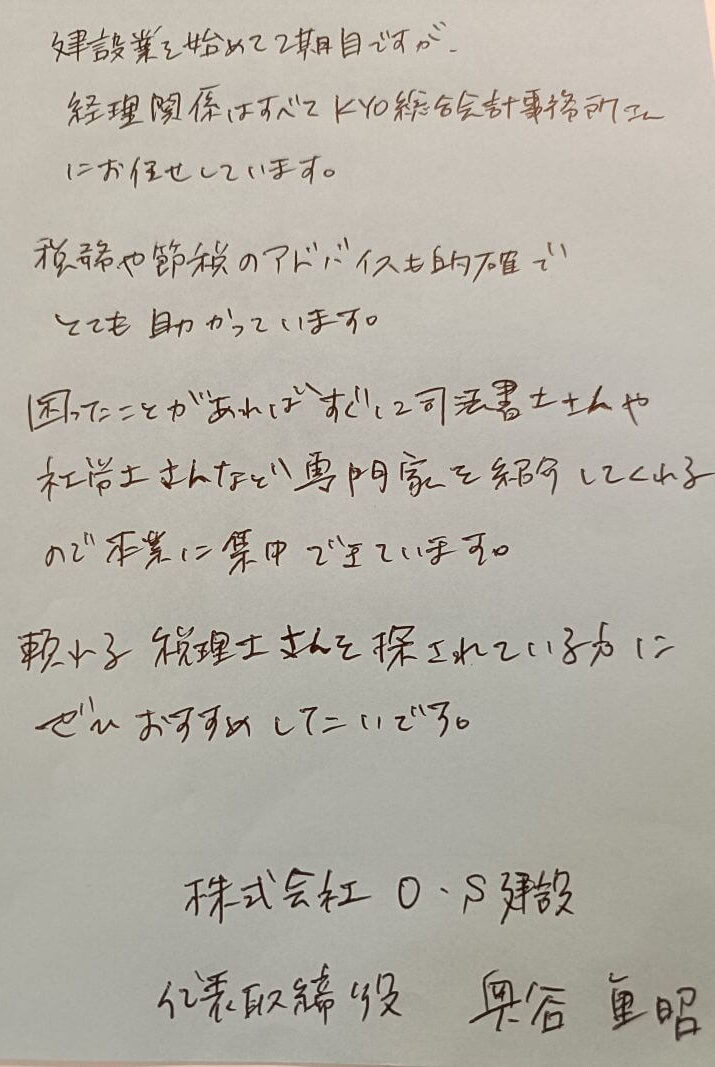 建設業を始めて2期目ですが、
経理関係はすべてKYO総合会計事務所さん
にお任せしています。
税務や節税のアドバイスも的確で
とても助かっています。
困ったことがあればすぐに司法書士さんや
社労士さんなど専門家を紹介してくれる
ので本業に集中できています。
頼れる税理士さんを探されている方に
ぜひおすすめしたいです。
株式会社 O・S建設
代表取締役 奥谷 重昭